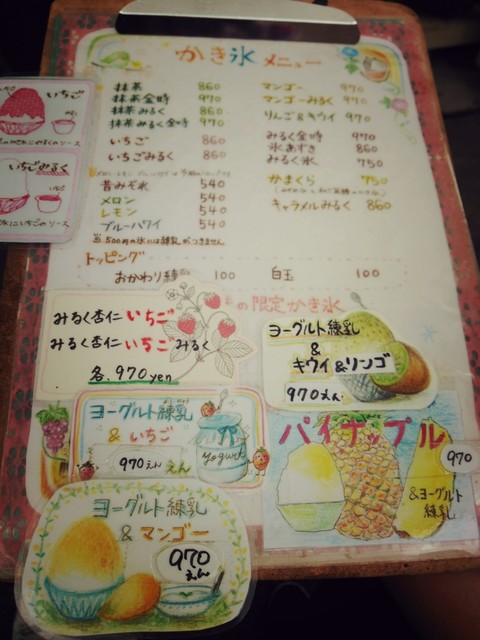 かき氷 メニュー
抹茶 860
抹茶金時 970
抹茶みるく 860
抹茶みるく金時 970
いちご 860
いちごみるく 860
昔みぞれ 540
メロン 540
レモン 540
ブルーハワイ 540
マンゴー 970
マンゴーみるく 970
りんご&キウイ 970
みるく金時 970
氷あずき 860
みるく氷 750
かまくら 750
キャラメルみるく 860
トッピング
おかわり練乳 100
白玉 100
いちご
いちごみるく
の限定かき氷
みるく杏仁いちご
みるく杏仁いちごみるく
各. 970yen
ヨーグルト練乳
&
キウイ&リンゴ
970えん
ヨーグルト練乳
&いちご
970えん えん
Yogurt
パイナップル
970
&ヨーグルト
練乳
ヨーグルト練乳
&マンゴー
970
えん